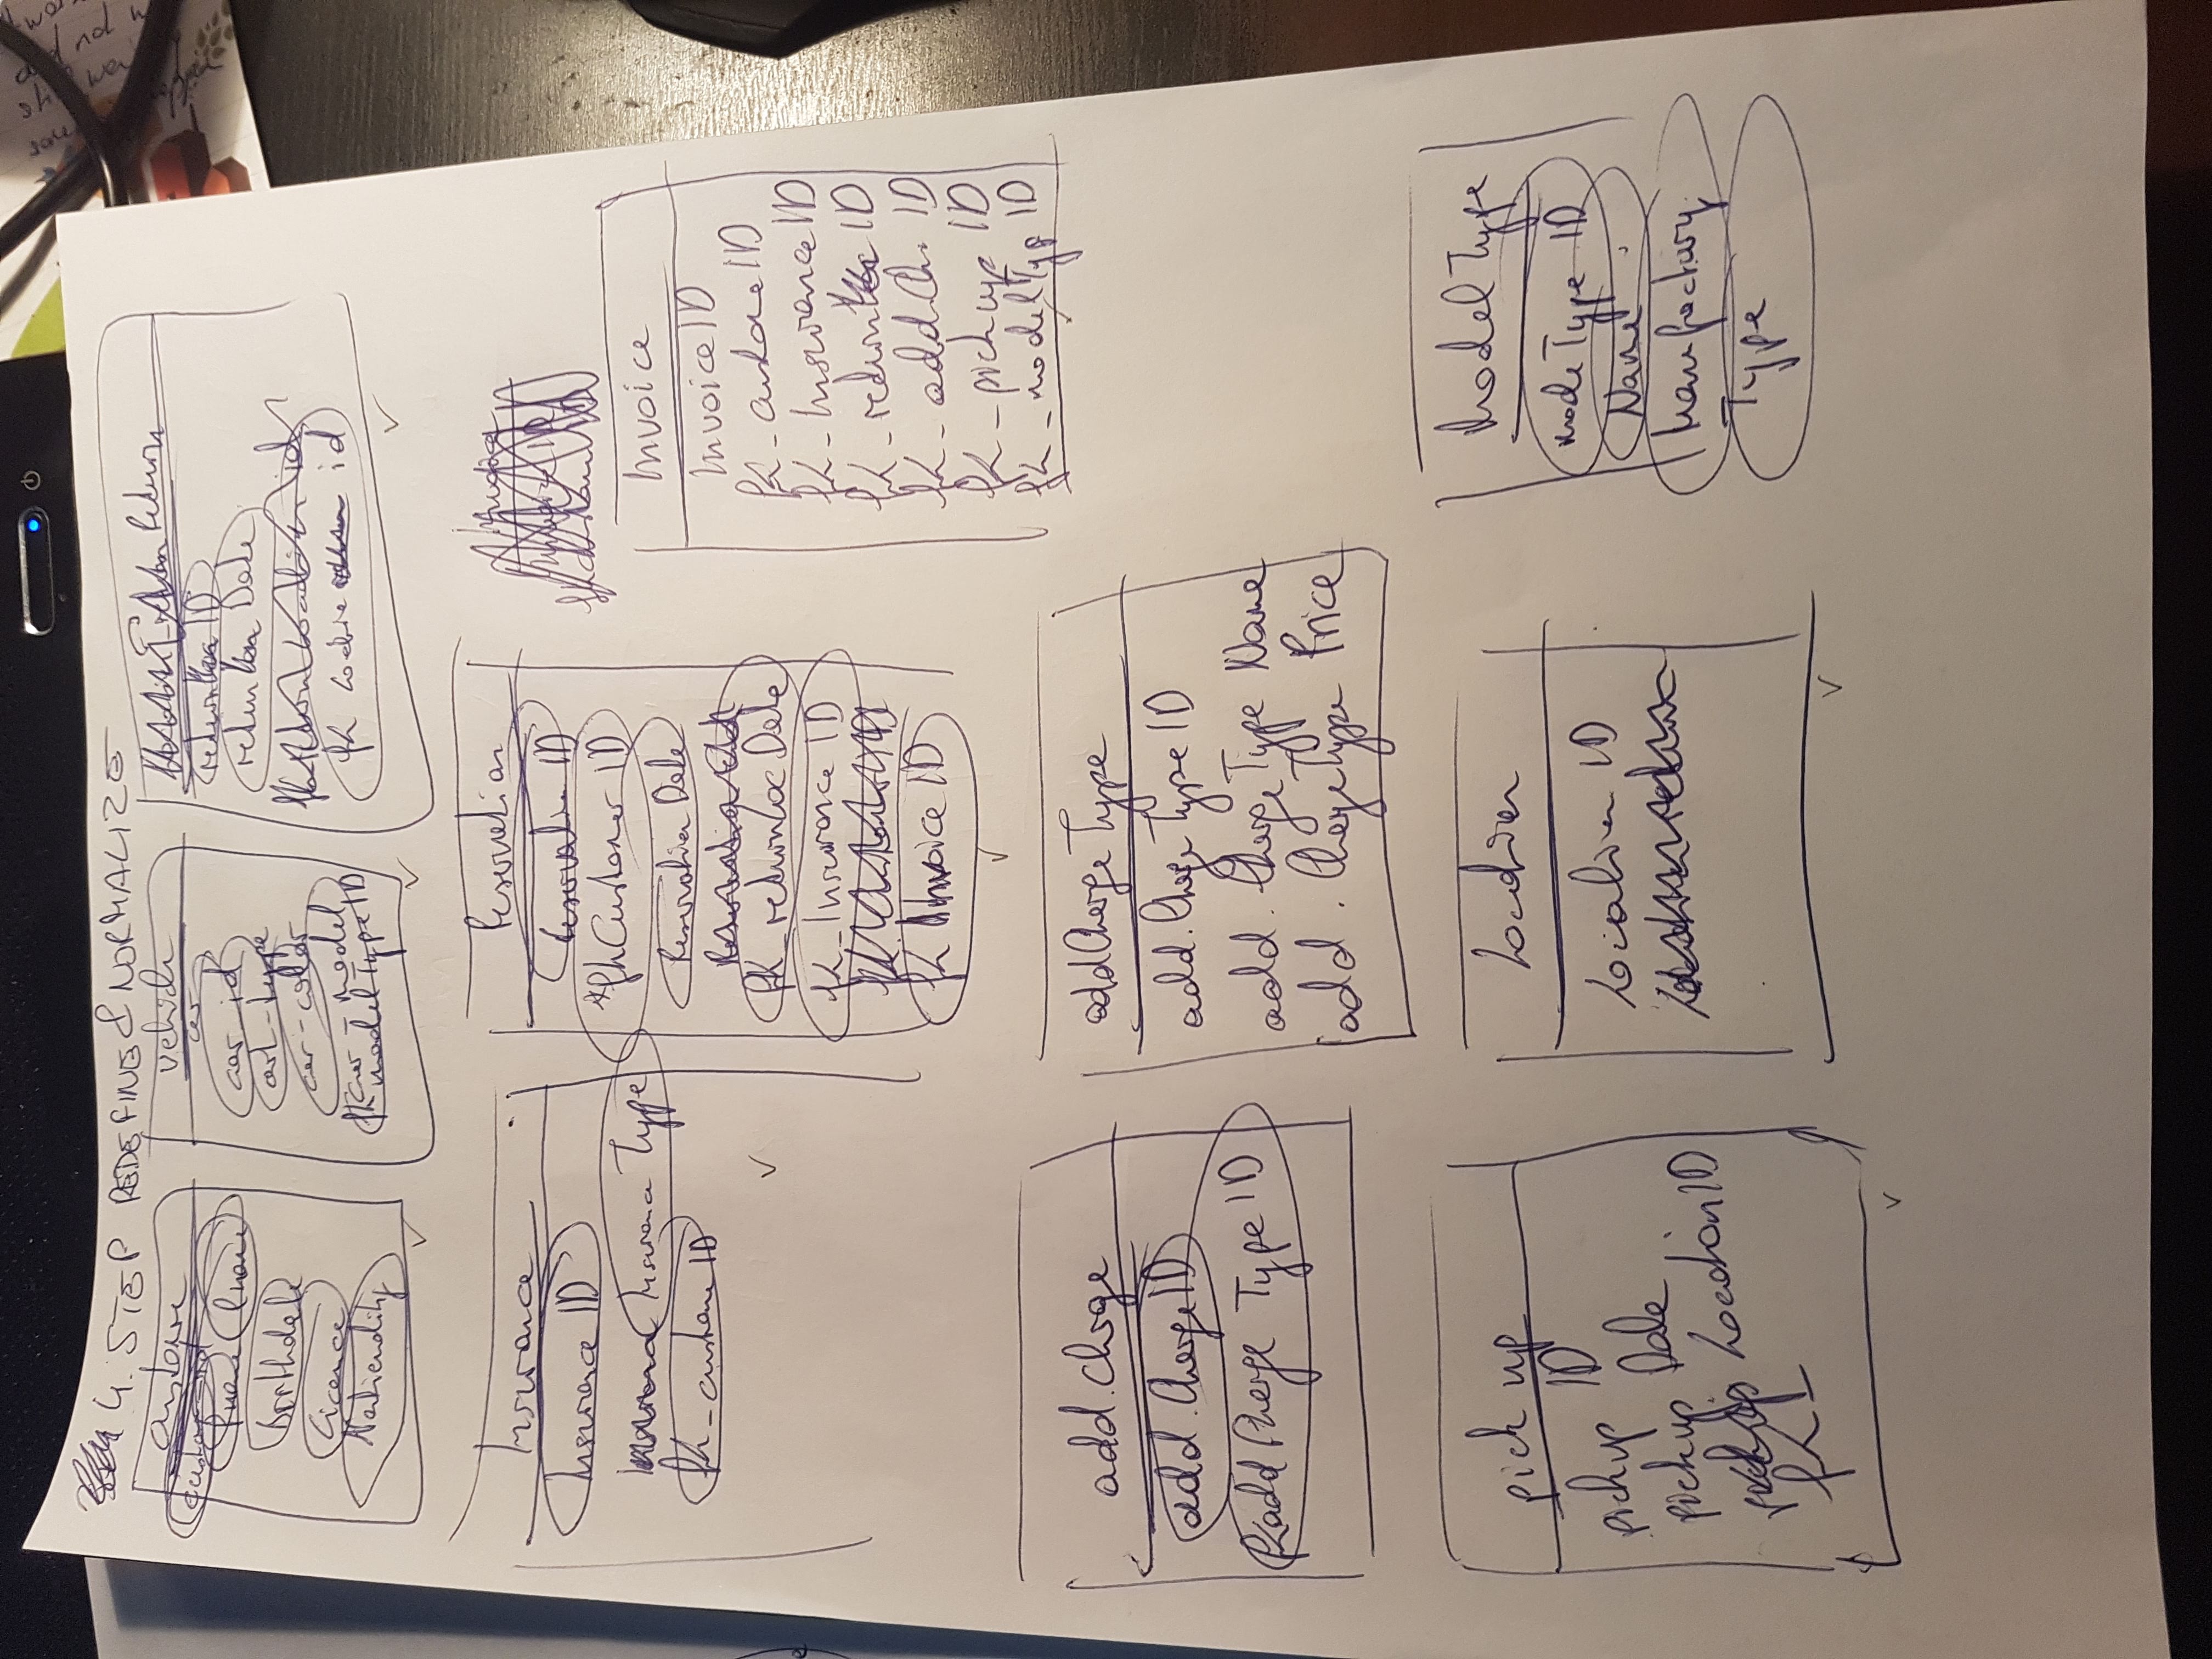 4. STEP REDEFINE & NORMALIZE
custome
fname lname
Birthdate
Licence
vehicle
car
car_id
car-type
car-color
car-model
fk modelType ID
Return
return ID
return Date
id
Insurance
Insurance ID
Insurance Type
fk_custome ID
Reservation
Reservation ID
*fk Customer ID
Reservation Date
fk_returnloc Date
fk_Insurance ID
fk Invoice ID
Invoice
Invoice ID
fk_custome ID
fk_Insurance ID
fk_return ID
fk_add.Ch. ID
fk_pickup ID
fk_modelTyp ID
add.Chrge
add.ChargeID
fkaddCherge Type ID
addChergeType
add.ChergeType ID
add.ChergeType Name
add.ChergeType Price
pick up
pickup ID
pickup Date
LocationID
fk_
Location
Location ID
Model Type
modeType ID
Name
Manufactury
Type